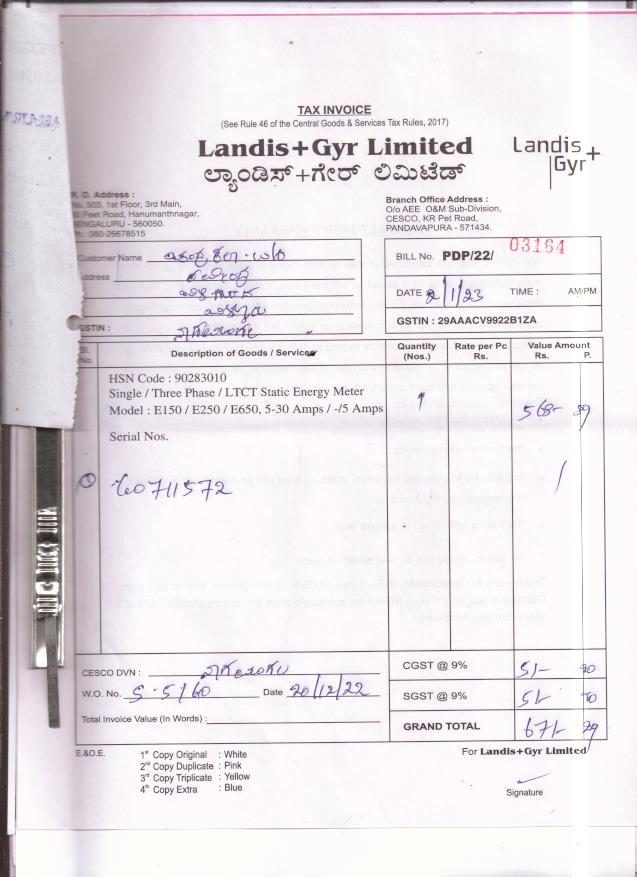 TAX INVOICE
(See Rule 46 of the Central Goods & Services Tax Rules, 2017)
Landis+Gyr Limited
ಲ್ಯಾಂಡಿಸ್+ಗೇರ್ ಲಿಮಿಟೆಡ್
Landis+
Gyr
R. O. Address :
No. 503, 1st Floor, 3rd Main,
Feet Road, Hanumanthnagar,
BENGALURU - 560050.
080-26678515
Branch Office Address :
O/o AEE O&M Sub-Division,
CESCO, KR Pet Road,
PANDAVAPURA - 571434.
Customer Name
Address
GSTIN :
BILL No. PDP/22/ 03164
DATE 2/1/23 TIME : AM/PM
GSTIN : 29AAACV9922B1ZA
Sl. No. Description of Goods / Services Quantity (Nos.) Rate per Pc Rs. Value Amount Rs. P.
HSN Code : 90283010
Single / Three Phase / LTCT Static Energy Meter
Model : E150 / E250 / E650, 5-30 Amps / -/5 Amps 1 568- 89
Serial Nos.
60711572
CESCO DVN :
W.O. No. S-5/60 Date 20/12/22
Total Invoice Value (In Words) :
CGST @ 9% 51- 20
SGST @ 9% 51- 20
GRAND TOTAL 671- 29
E.&O.E. 1st Copy Original : White
2nd Copy Duplicate : Pink
3rd Copy Triplicate : Yellow
4th Copy Extra : Blue
For Landis+Gyr Limited
Signature